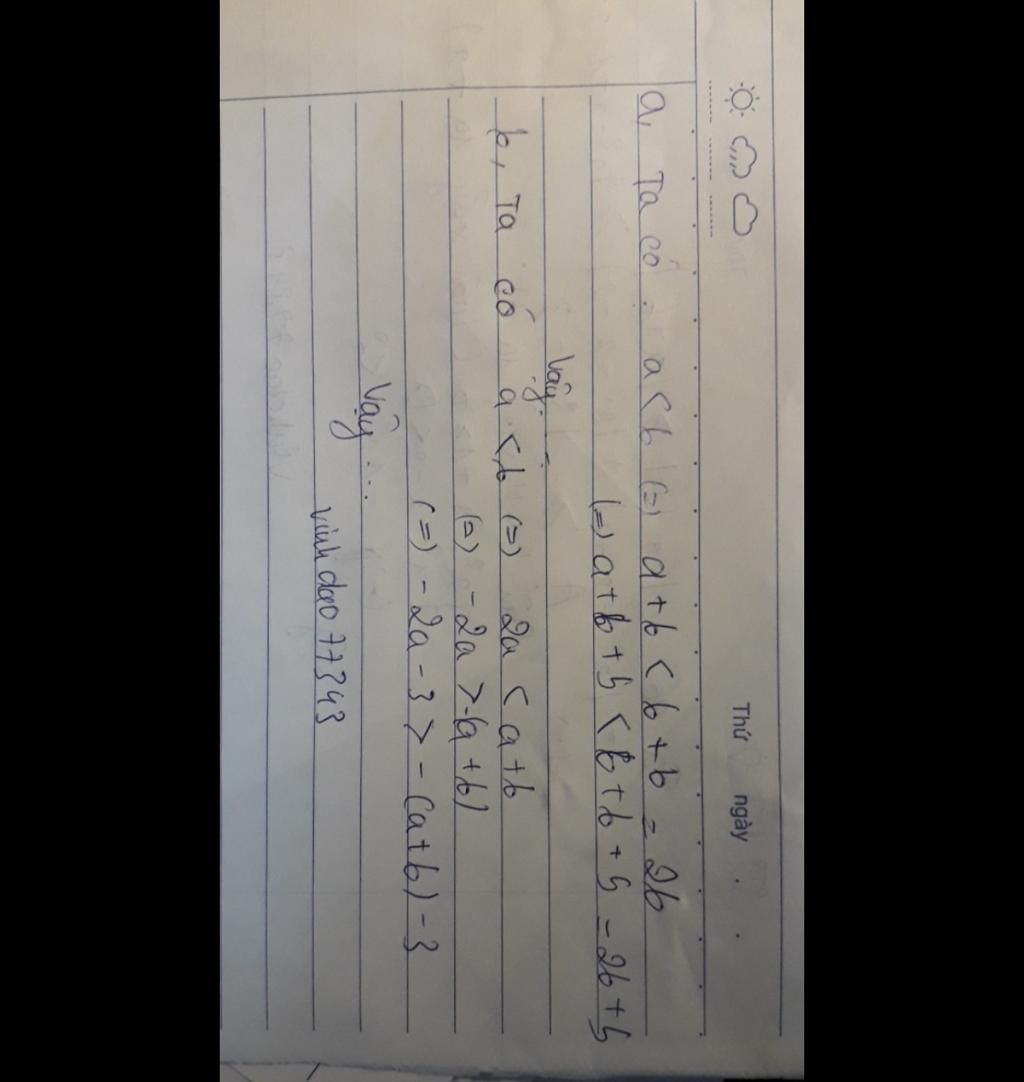 Thứ ngày
a, Ta có : a < b (=) a + b < b + b = 2b
(=) a + b + 5 < b + b + 5 = 2b + 5
Vậy...
b, Ta có a < b (=) 2a < a + b
(=) - 2a > -(a + b)
(=) - 2a - 3 > - (a + b) - 3
Vậy ...
vinhdao77343